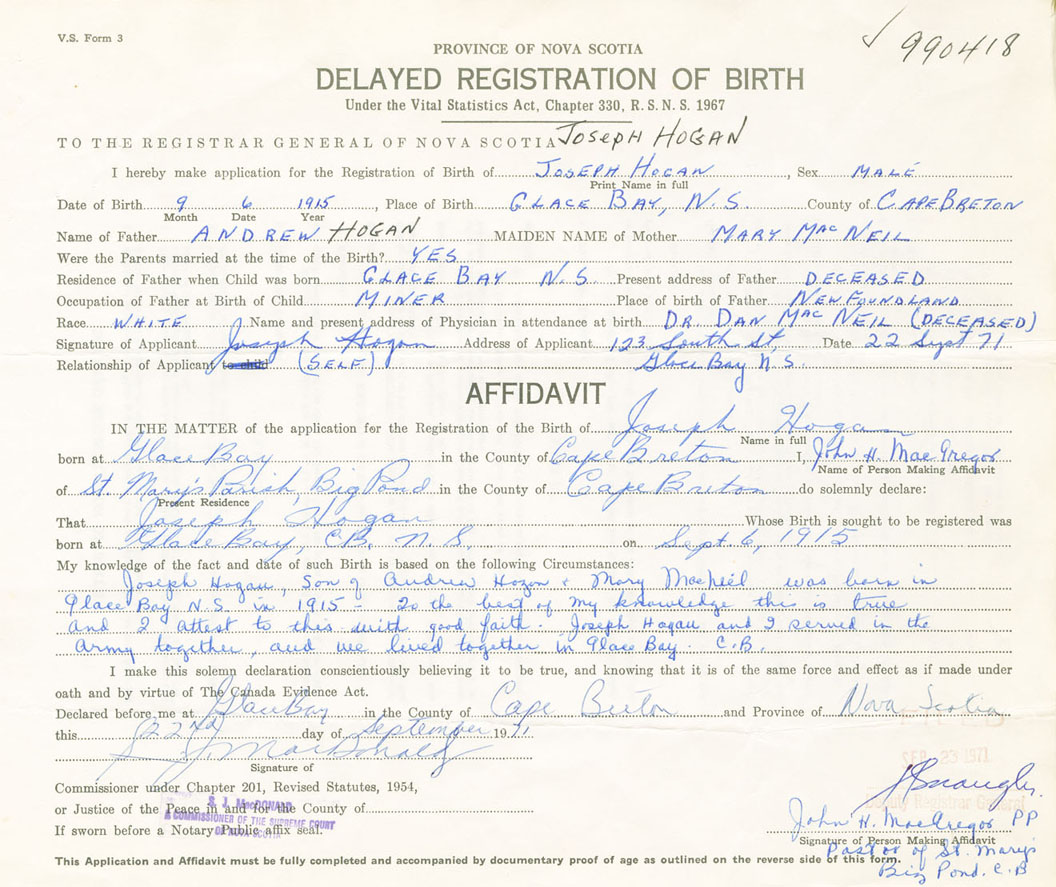 V.S. Form 3
✓ 990418
PROVINCE OF NOVA SCOTIA
DELAYED REGISTRATION OF BIRTH
Under the Vital Statistics Act, Chapter 330, R. S. N. S. 1967
TO THE REGISTRAR GENERAL OF NOVA SCOTIA JOSEPH HOGAN
I hereby make application for the Registration of Birth of JOSEPH HOGAN, Sex MALE
Print Name in full
Date of Birth 9 6 1915, Place of Birth GLACE BAY, N.S. County of CAPE BRETON
Month Date Year
Name of Father ANDREW HOGAN MAIDEN NAME of Mother MARY MACNEIL
Were the Parents married at the time of the Birth? YES
Residence of Father when Child was born GLACE BAY N.S. Present address of Father DECEASED
Occupation of Father at Birth of Child MINER Place of birth of Father NEWFOUNDLAND
Race WHITE Name and present address of Physician in attendance at birth DR. DAN MAC NEIL (DECEASED)
Signature of Applicant Joseph Hogan Address of Applicant 123 South St, Date 22 Sept 71
Relationship of Applicant to child (SELF) Glace Bay N.S.
AFFIDAVIT
IN THE MATTER of the application for the Registration of the Birth of Joseph Hogan
Name in full
born at Glace Bay in the County of Cape Breton I, John H. MacGregor
Name of Person Making Affidavit
of St. Mary's Parish, Big Pond in the County of Cape Breton do solemnly declare:
Present Residence
That Joseph Hogan Whose Birth is sought to be registered was
born at Glace Bay, C.B. N.S. on Sept. 6, 1915
My knowledge of the fact and date of such Birth is based on the following Circumstances:
Joseph Hogan, Son of Andrew Hogan & Mary MacNeil was born in
Glace Bay N.S. in 1915 - To the best of my knowledge this is true
and I attest to this with good faith. Joseph Hogan and I served in the
army together, and we lived together in Glace Bay. C.B.
I make this solemn declaration conscientiously believing it to be true, and knowing that it is of the same force and effect as if made under
oath and by virtue of The Canada Evidence Act.
Declared before me at Glace Bay in the County of Cape Breton and Province of Nova Scotia
this 22nd day of September 1971
SEP 23 1971
S. J. MacDonald
Signature of
Commissioner under Chapter 201, Revised Statutes, 1954,
or Justice of the Peace in and for the County of
S. J. MacDONALD
A COMMISSIONER OF THE SUPREME COURT
OF NOVA SCOTIA
If sworn before a Notary Public affix seal.
Deputy Registrar General
John H. MacGregor PP
Signature of Person Making Affidavit
Pastor of St. Mary's
Big Pond. C.B
This Application and Affidavit must be fully completed and accompanied by documentary proof of age as outlined on the reverse side of this form.